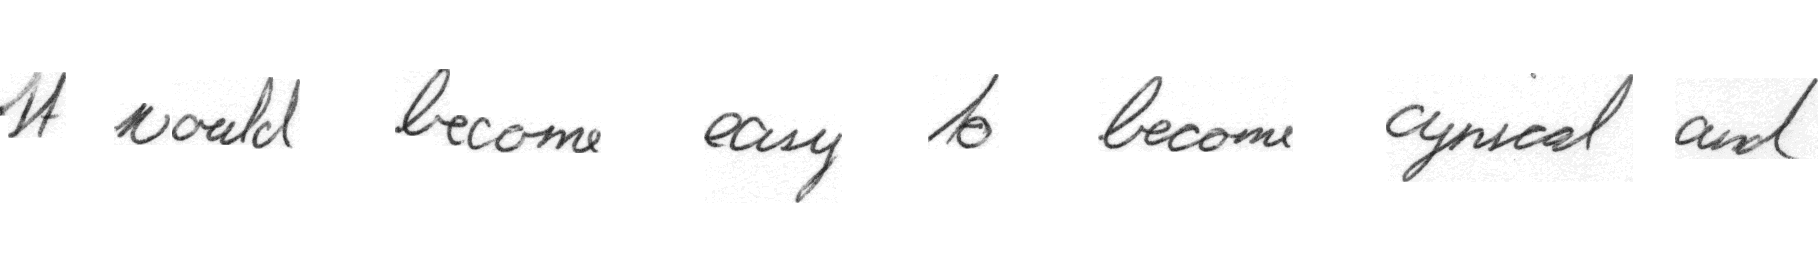 It would become easy to become cynical and